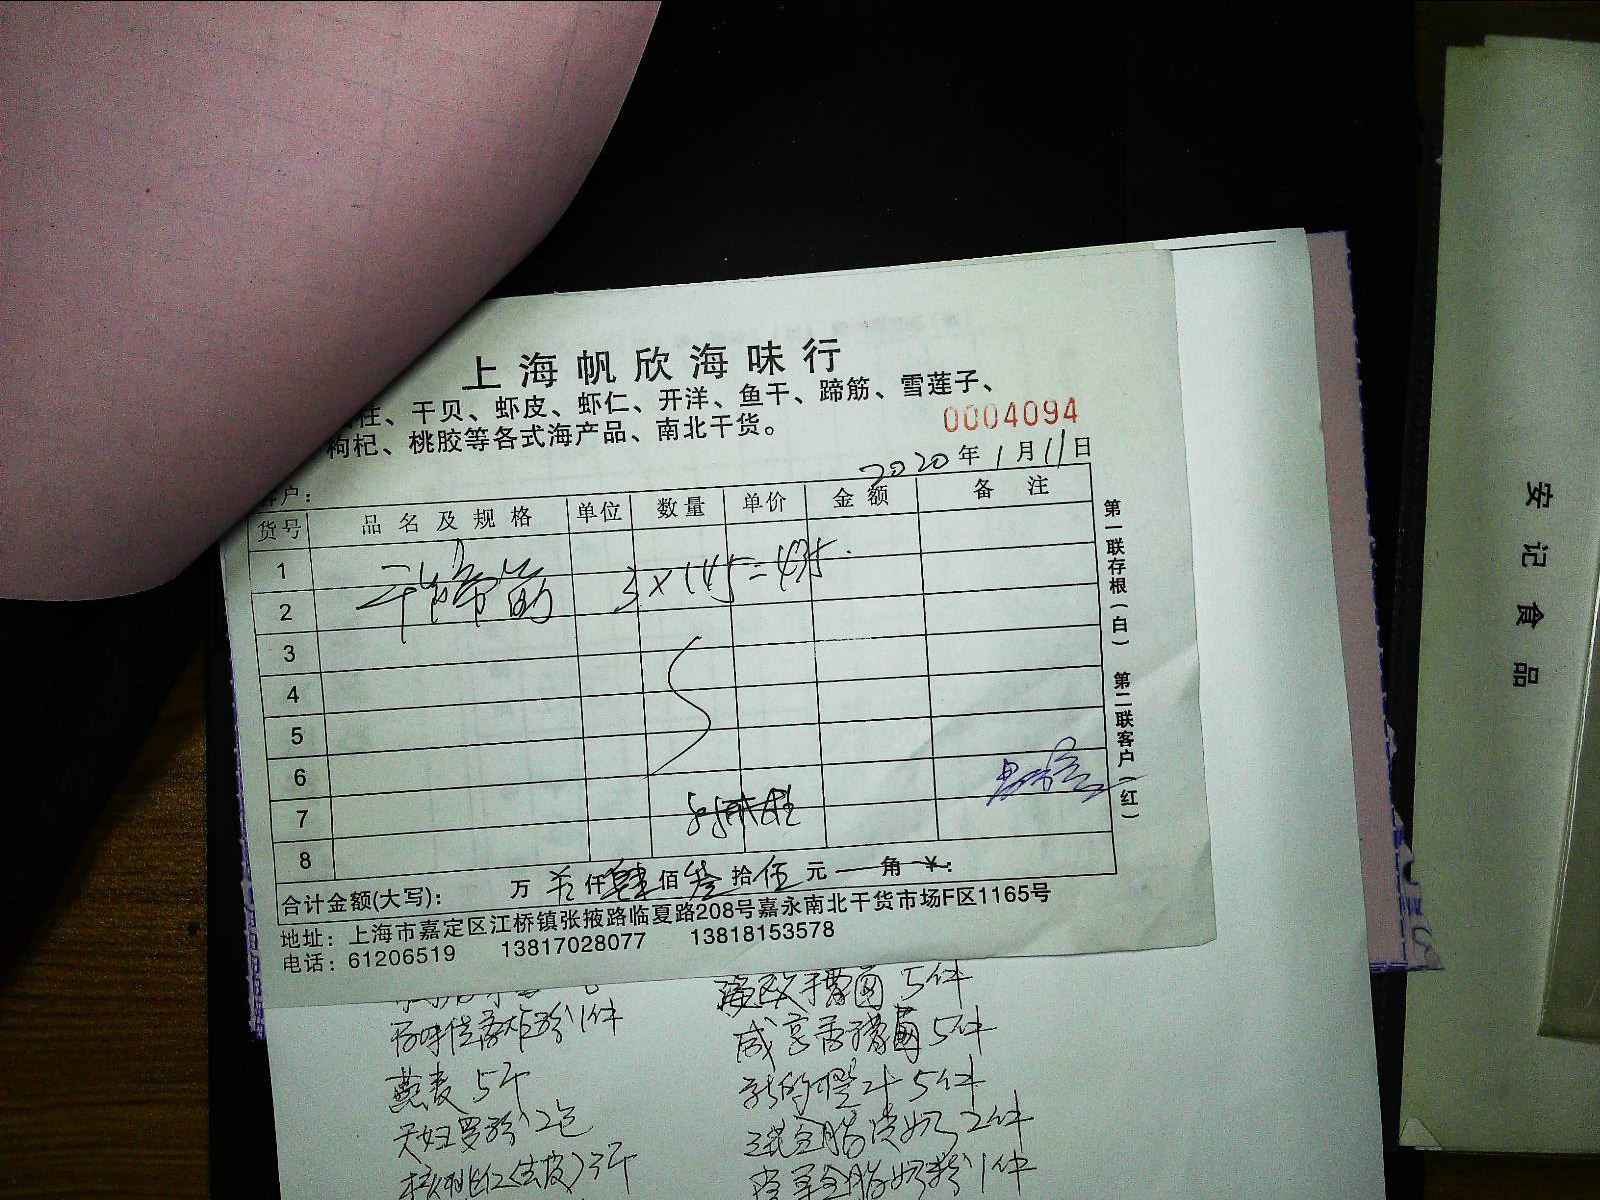 上海帆欣海味行
柱、干贝、虾皮、虾仁、开洋、鱼干、蹄筋、雪莲子、
枸杞、桃胶等各式海产品、南北干货。
0004094
2020年1月11日
客户：
货号 品名及规格 单位 数量 单价 金额 备注
1
干蹄筋 3×145=435.
2
3
4
5
6
7
8
合计金额(大写)： 万 仟肆佰叁拾伍元 — 角 ¥：
地址：上海市嘉定区江桥镇张掖路临夏路208号嘉永南北干货市场F区1165号
电话：61206519 13817028077 13818153578
第一联存根(白) 第二联客户(红)
1件
燕麦 5斤
天妇罗粉 2包
核桃仁(去皮) 3斤
5件
咸亨香糟卤 5件
新的橙汁 5件
全脂淡奶 2件
全脂奶粉 1件
安记食品